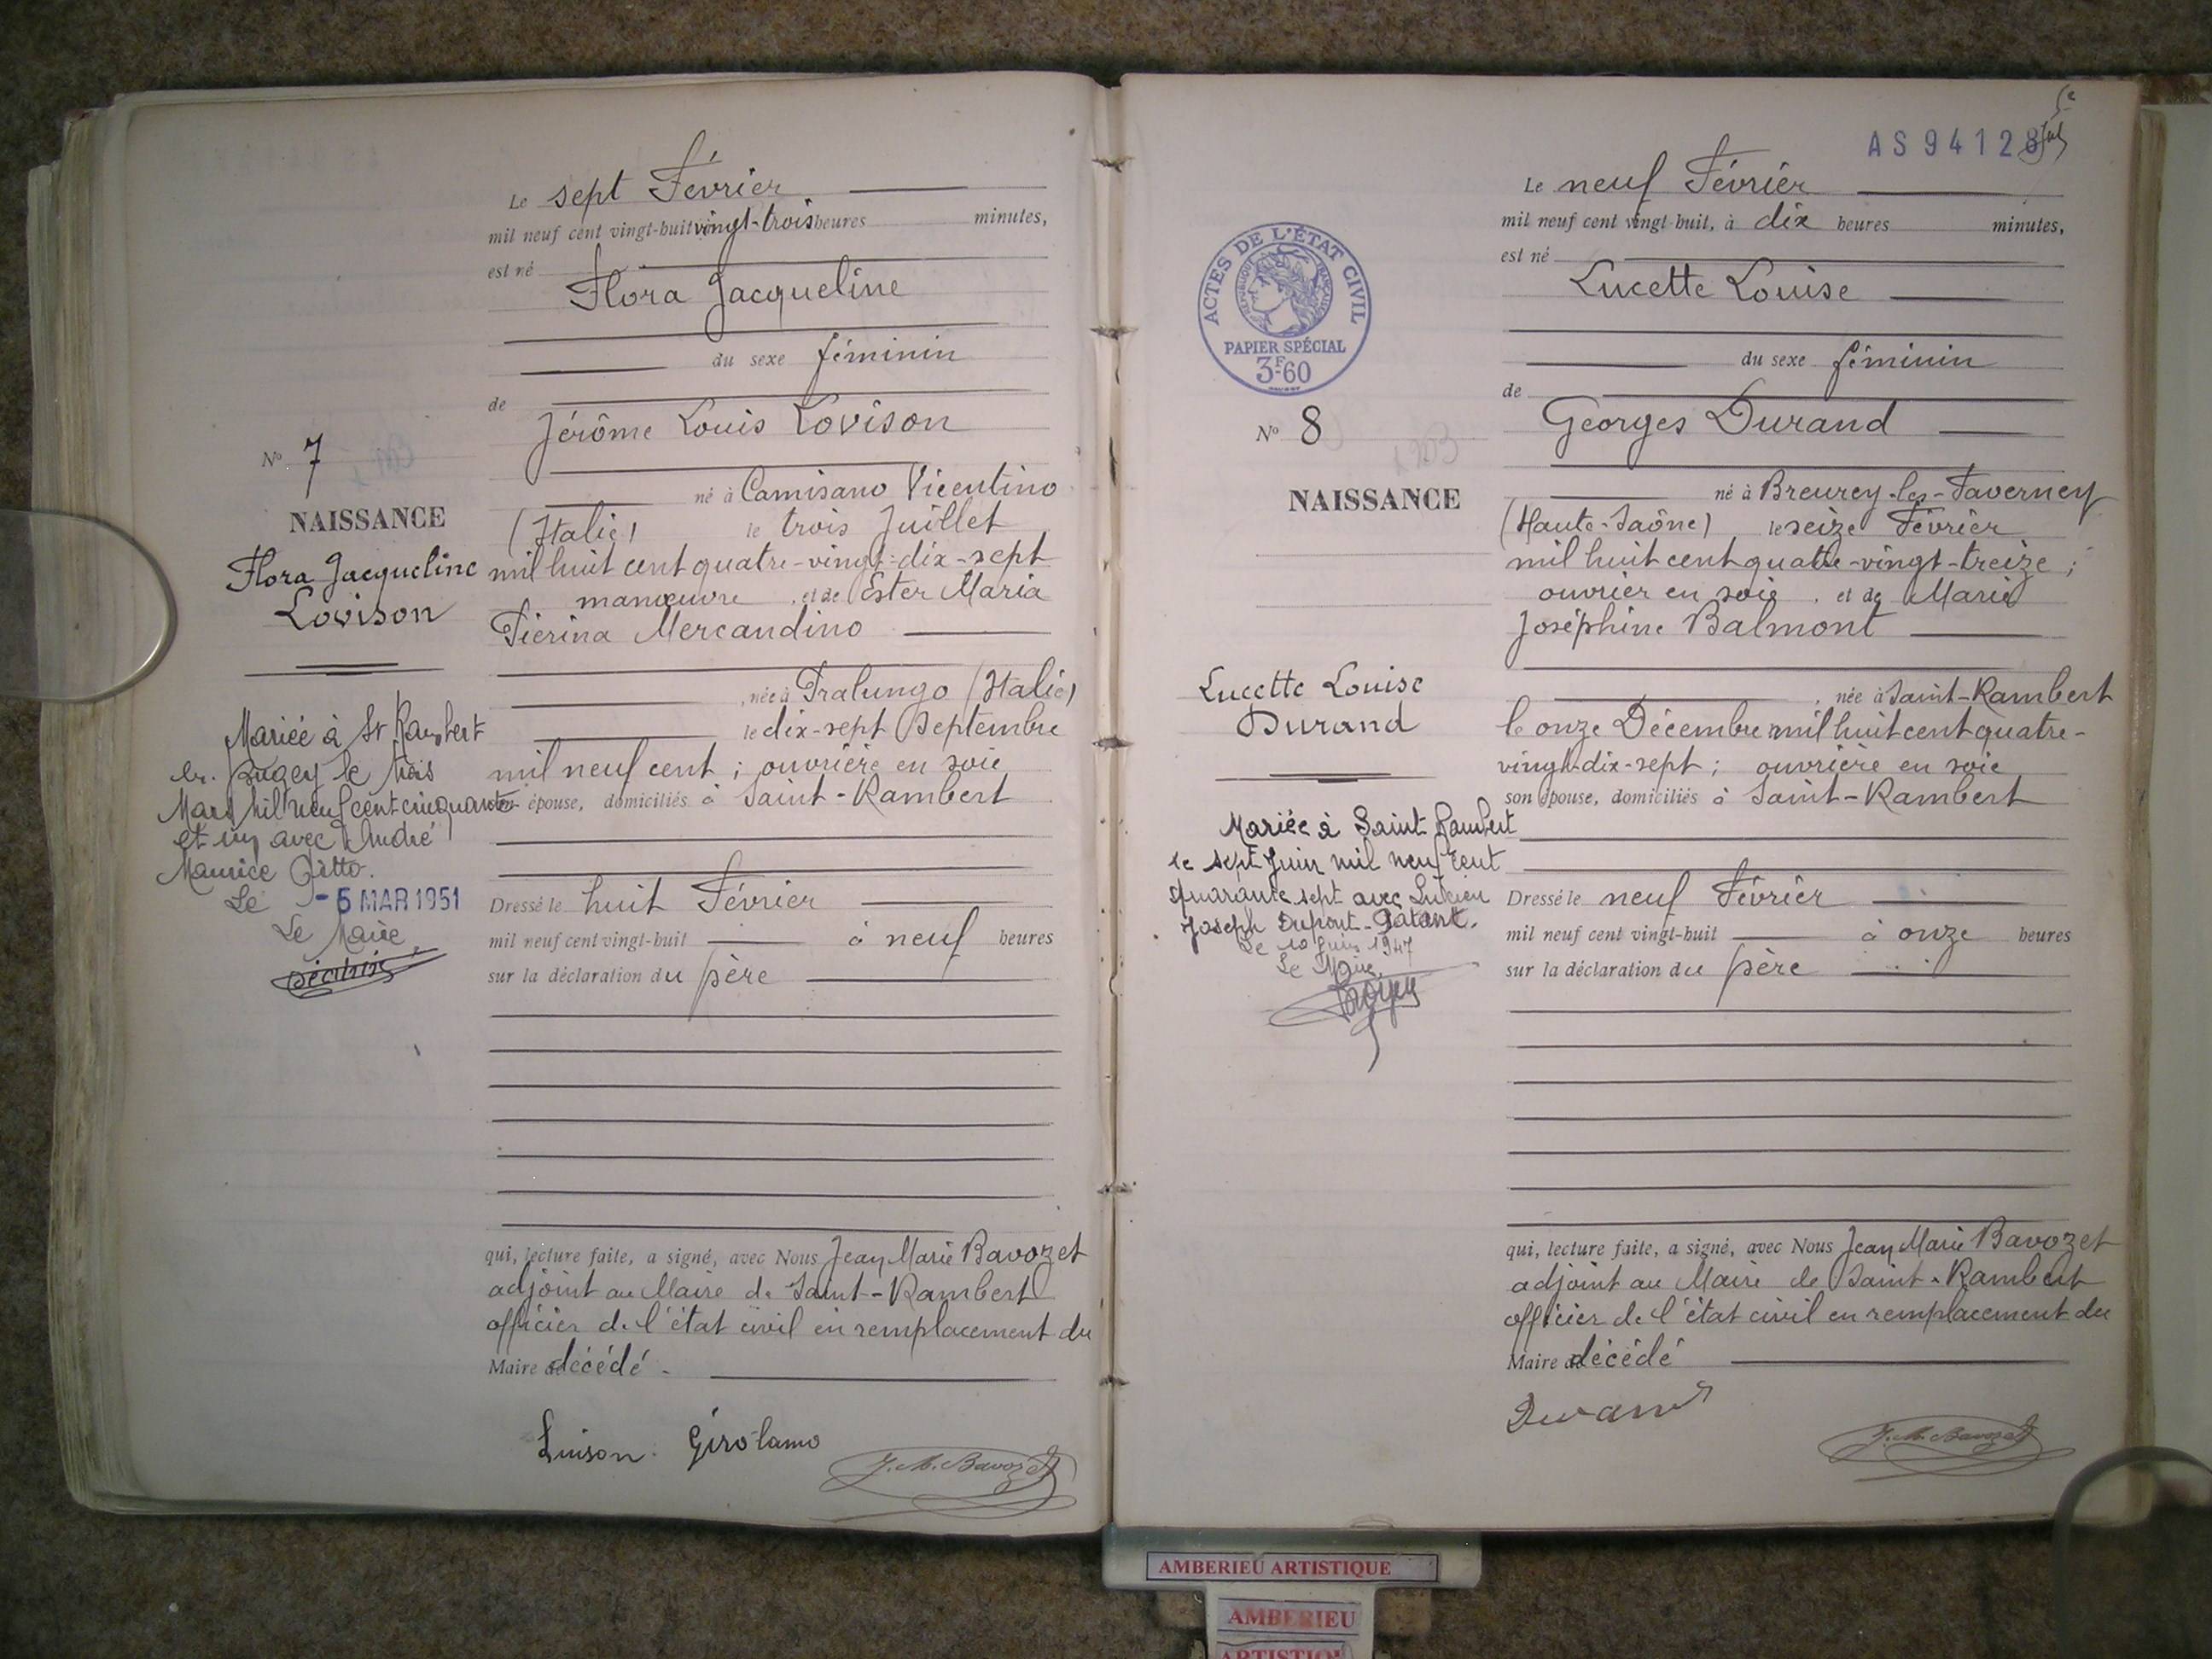 Le sept Février
mil neuf cent vingt-huit vingt-trois heures minutes,
est né
Flora Jacqueline
du sexe féminin
de
Jérôme Louis Lovison
né à Camisano Vicentino
(Italie) le trois Juillet
mil huit cent quatre-vingt-dix-sept
manœuvre, et de Ester Maria
Pierina Mercandino
, née à Pralungo (Italie)
le dix-sept Septembre
mil neuf cent ; ouvrière en soie
épouse, domiciliés à Saint-Rambert
Dressé le huit Février
mil neuf cent vingt-huit à neuf heures
sur la déclaration du père
qui, lecture faite, a signé, avec Nous Jean Marie Bavozet
adjoint au Maire de Saint-Rambert
officier de l'état civil en remplacement du
Maire décédé.
Luison Girolamo
J. M. Bavozet
No 7
NAISSANCE
Flora Jacqueline
Lovison
Mariée à St Rambert
en Bugey le trois
Mars mil neuf cent cinquante
et un avec André
Maurice
Le -5 MAR 1951
Le Maire,
AS 94128
Le neuf Février
mil neuf cent vingt-huit, à dix heures minutes,
est né
Lucette Louise
du sexe féminin
de
Georges Durand
né à Breurey-les-Faverney
(Haute-Saône) le seize Février
mil huit cent quatre-vingt-treize ;
ouvrier en soie, et de Marie
Joséphine Balmont
, née à Saint-Rambert
le onze Décembre mil huit cent quatre-
vingt-dix-sept ; ouvrière en soie
son épouse, domiciliés à Saint-Rambert
Dressé le neuf Février
mil neuf cent vingt-huit à onze heures
sur la déclaration du père
qui, lecture faite, a signé, avec Nous Jean Marie Bavozet
adjoint au Maire de Saint-Rambert
officier de l'état civil en remplacement du
Maire décédé
Durand
J. M. Bavozet
ACTES DE L'ÉTAT CIVIL
RÉPUBLIQUE FRANÇAISE
PAPIER SPÉCIAL
3F60
No 8
NAISSANCE
Lucette Louise
Durand
Mariée à Saint Rambert
le sept Juin mil neuf cent
quarante sept avec Lucien
Joseph Dupont-
Le 10 Juin 1947
Le Maire,
AMBERIEU ARTISTIQUE
AMBERIEU
ARTISTIQUE